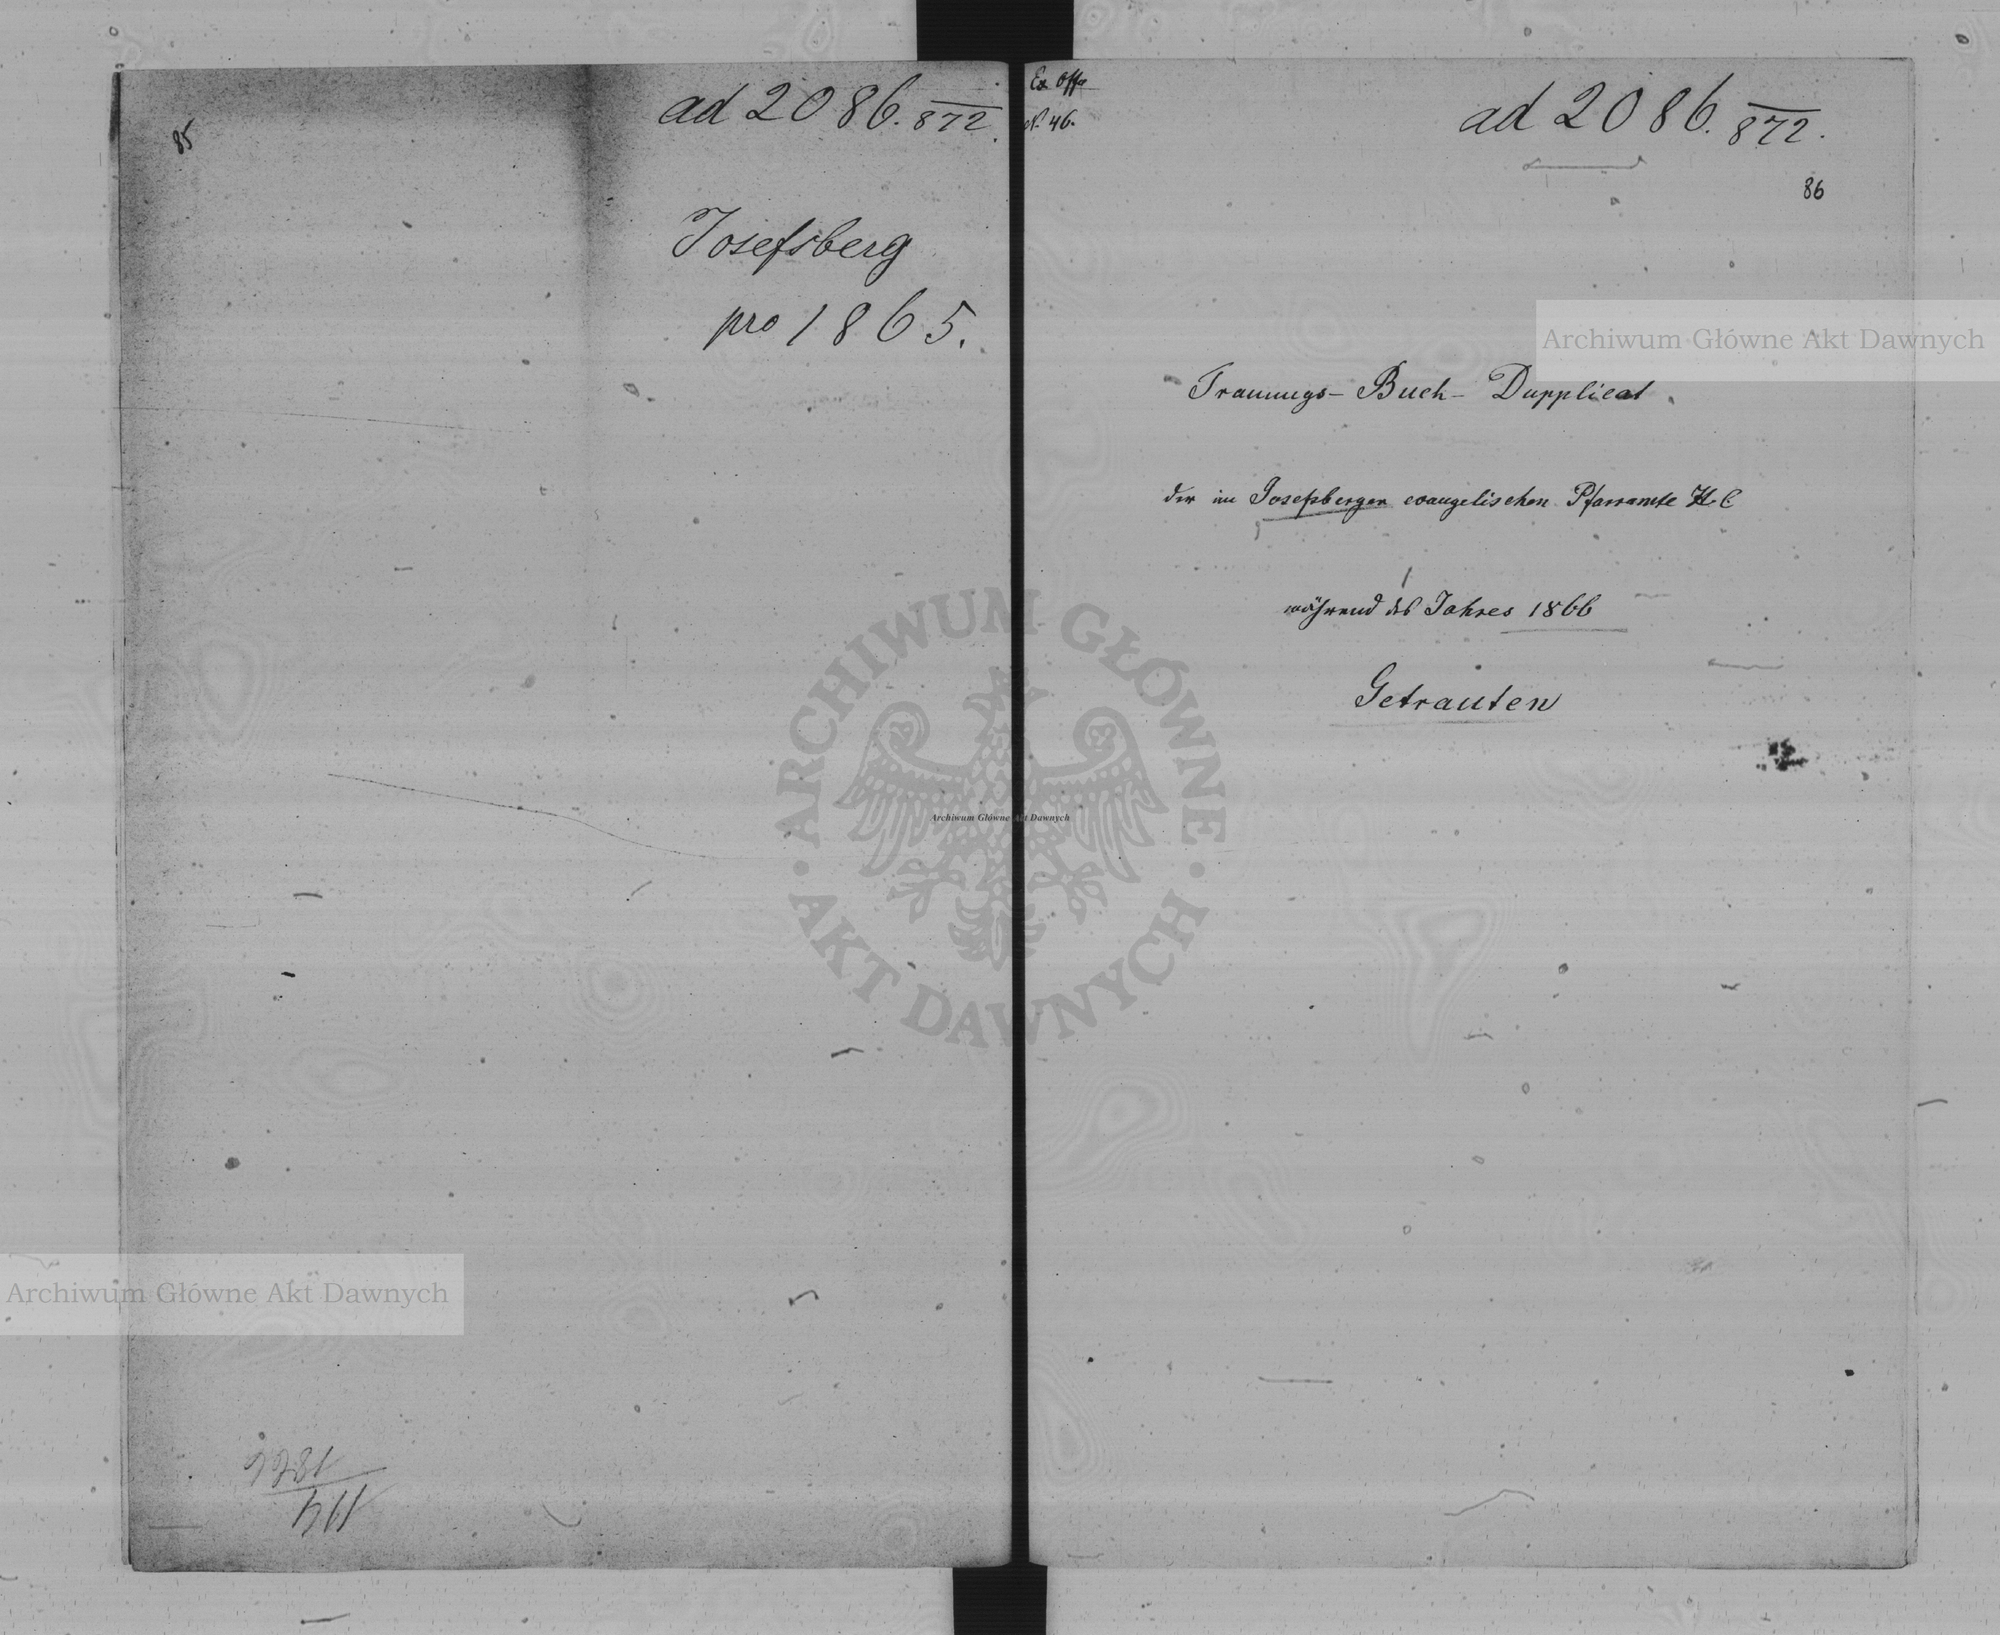 85
ad 2086.872.
Josefsberg
pro 1865.
1866
114
Ex Offo
N. 46.
ad 2086.872.
86
Trauungs-Buch-Dupplicat
der im Josefsberger evangelischen Pfarramte H. C
während des Jahres 1866
Getrauten
Archiwum Główne Akt Dawnych
Archiwum Główne Akt Dawnych
Archiwum Główne Akt Dawnych
ARCHIWUM GŁÓWNE · AKT DAWNYCH ·